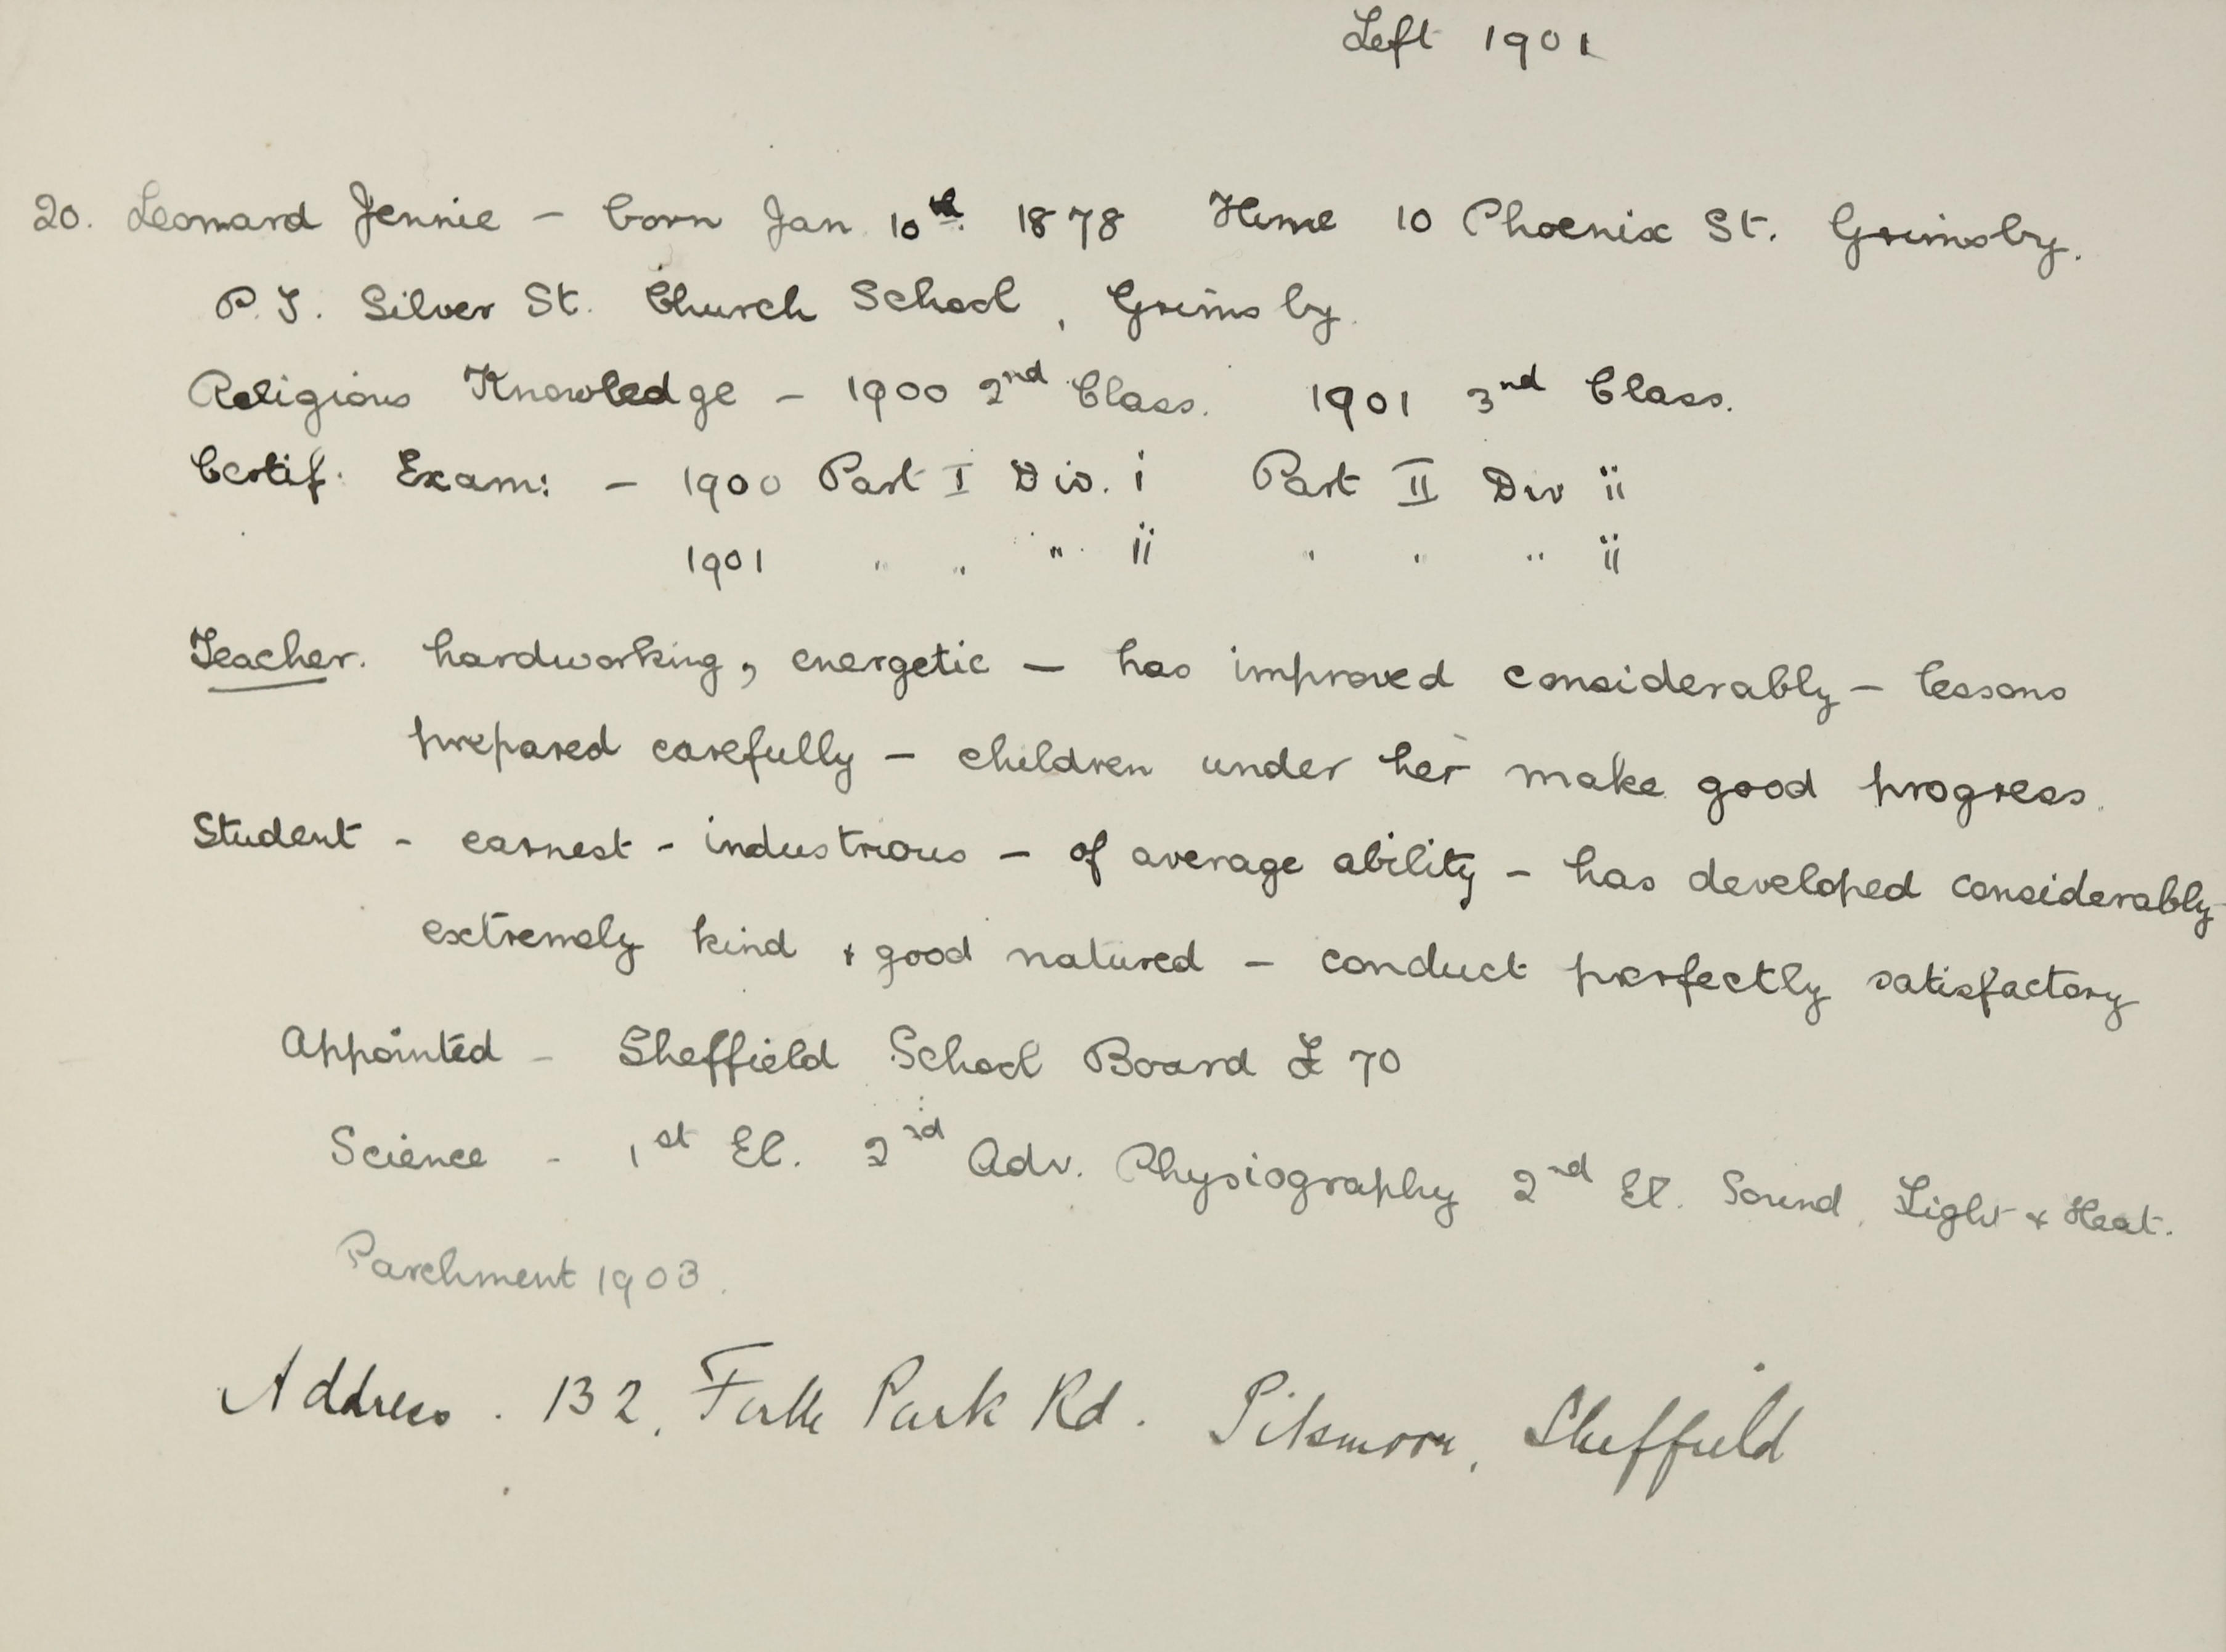 Left 1901
20. Leonard Jennie – born Jan 10th 1878 Home 10 Phoenix St. Grimsby.
P.T. Silver St. Church School, Grimsby.
Religious Knowledge – 1900 2nd Class. 1901 3nd Class.
Certif. Exam: – 1900 Part I Div. i Part II Div ii
1901 " " " ii " " " ii
Teacher. hardworking, energetic – has improved considerably – lessons
prepared carefully – children under her make good progress.
Student - earnest - industrious – of average ability – has developed considerably
extremely kind & good natured – conduct perfectly satisfactory
Appointed – Sheffield School Board £70
Science - 1st El. 2nd Adv. Physiography 2nd El. Sound, Light & Heat.
Parchment 1903.
Address. 132, Park Rd. Pitsmoor, Sheffield